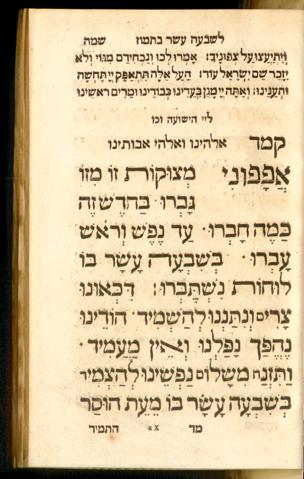 לשבעה עשר בתמוז שמה
וְיִתְיָעֲצוּ עַל צְפוּנֶיךָ: אָמְרוּ לְכוּ וְנַכְחִידֵם מִגּוֹי וְלֹא
יִזָּכֵר שֵׁם יִשְׂרָאֵל עוֹד: הַעַל אֵלֶּה תִתְאַפַּק יְיָ תֶּחֱשֶׁה
וּתְעַנֵּינוּ: וְאַתָּה יְיָ מָגֵן בַּעֲדֵינוּ כְּבוֹדֵינוּ וּמֵרִים רֹאשֵׁינוּ
ליי הישועה וכו
קמד אלהינו ואלהי אבותינו
אֲפָפוּנִי מְצוּקוֹת זוֹ מִזּוֹ
גָּבְרוּ בַּחֹדֶשׁ זֶה
בַּמֶּה חָבְרוּ עַד נֶפֶשׁ וְרֹאשׁ
עָבְרוּ בְּשִׁבְעָה עָשָׂר בּוֹ
לוּחוֹת נִשְׁתַּבְּרוּ: דִּכְּאוּנוּ
צָרִים וְנִתַּנְנוּ לְהַשְׁמִיד הוֹדֵינוּ
נֶהְפַּךְ נָפַלְנוּ וְאֵין מַעֲמִיד
וַתִּזְנַח מִשָּׁלוֹם נַפְשֵׁינוּ לְהַצְמִיד
בְּשִׁבְעָה עָשָׂר בּוֹ מֵעֵת הוּסַר
מד xX התמיד